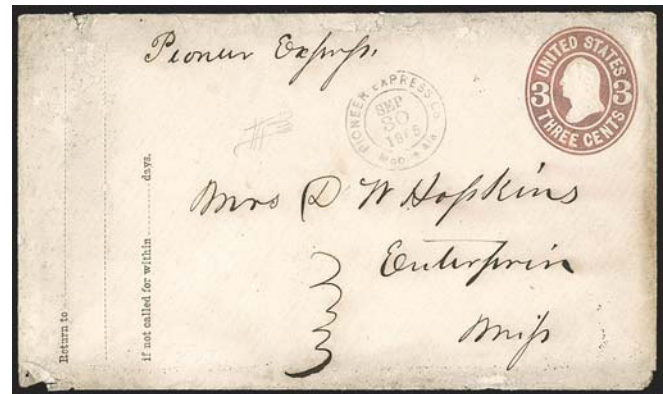 Pioneer Express.
PIONEER EXPRESS Co.
SEP
30
1865
Mobile Ala
UNITED STATES
3 3
THREE CENTS
Mrs D W Hopkins
Enterprise
Miss
Return to
if not called for within days.